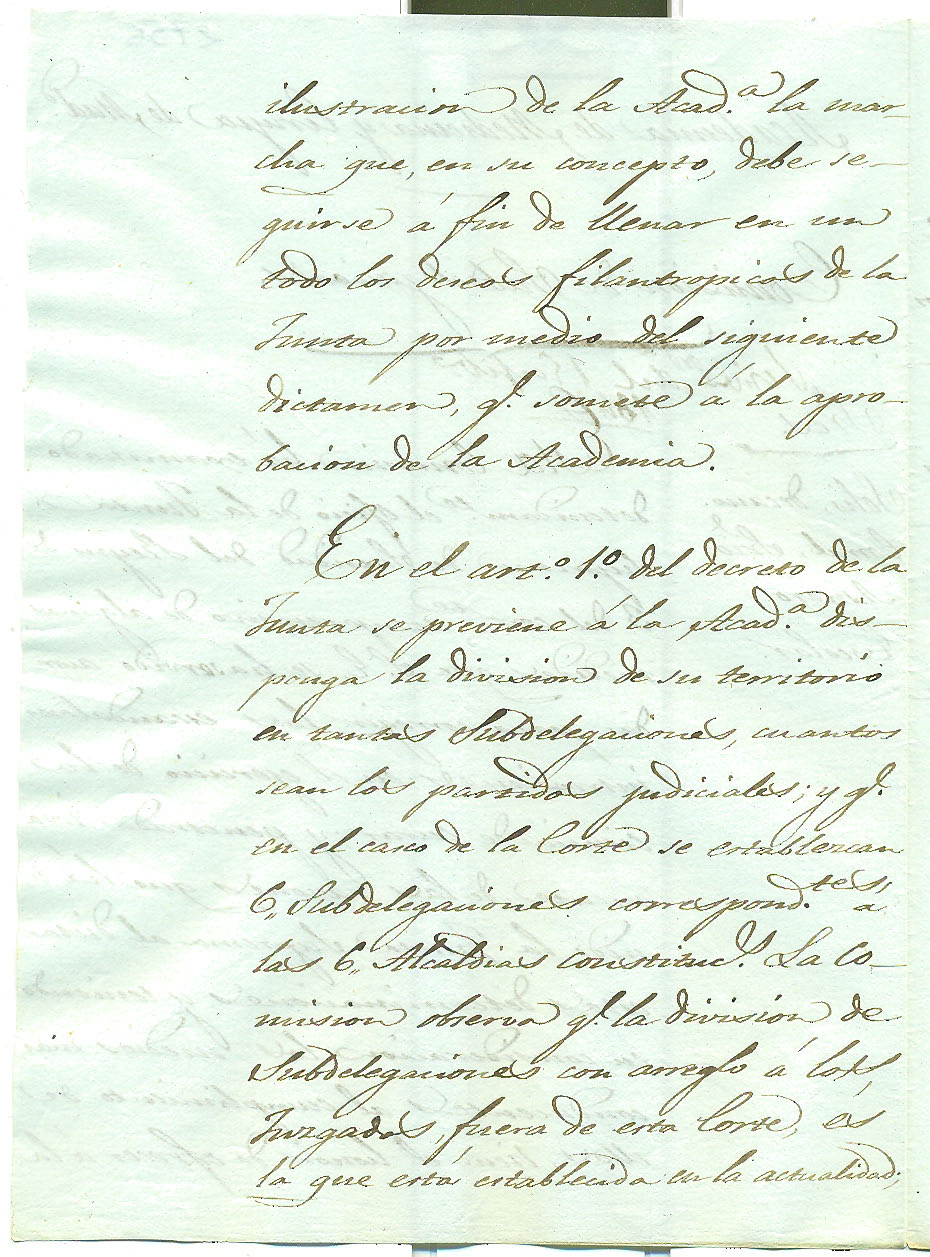 ilustracion de la Acad.ª la mar-
cha que, en su concepto, debe se-
guirse á fin de llenar en un
todo los deseos filantropicos de la
Junta por medio del siguiente
dictamen, q.e somete á la apro-
bacion de la Academia.
En el art.º 1.º del decreto de la
Junta se previene á la Acad.ª dis-
ponga la division de su territorio
en tantas Subdelegaciones, cuantos
sean los partidos judiciales; y q.e
en el casco de la Corte se establezcan
6,, Subdelegaciones correspond.tes á
las 6,, Alcaldias constituc.s La Co-
mision observa q.e la división de
Subdelegaciones con arreglo á los
Juzgados, fuera de esta Corte, es
la que está establecida en la actualidad;